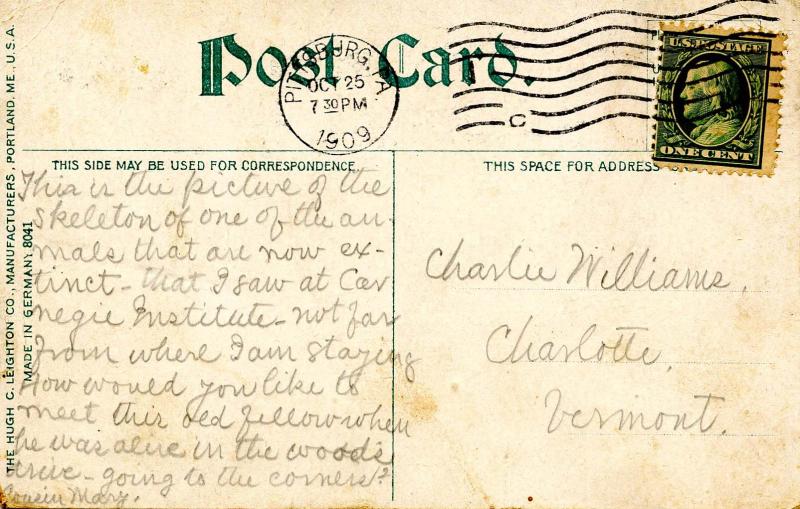 Post Card.
PITTSBURG, PA.
OCT 25
7 30 PM
1909
C
U.S. POSTAGE
ONE CENT
THIS SIDE MAY BE USED FOR CORRESPONDENCE
This is the picture of the
skeleton of one of the an-
mals that are now ex-
tinct - that I saw at Car
negie Institute - not far
from where I am staying
How would you like to
meet this old fellow when
he was alive in the woods
drive - going to the corners?
Cousin Mary.
THIS SPACE FOR ADDRESS ONLY
Charlie Williams,
Charlotte,
Vermont.
THE HUGH C. LEIGHTON CO., MANUFACTURERS, PORTLAND, ME., U.S.A.
MADE IN GERMANY 8041